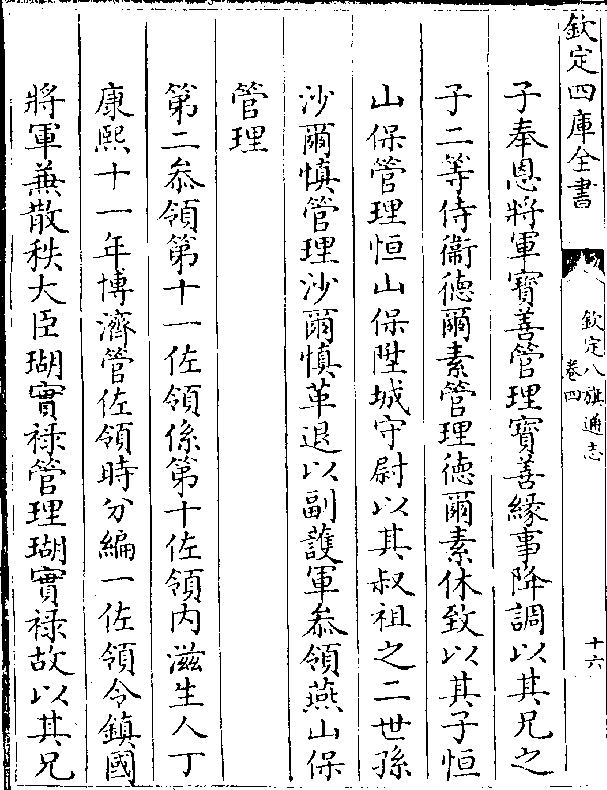 欽定四庫全書
欽定八旗通志
卷四
十六
子奉恩將軍寶善管理寶善緣事降調以其兄之
子二等侍衞德爾素管理德爾素休致以其子恒
山保管理恒山保陞城守尉以其叔祖之二世孫
沙爾慎管理沙爾慎革退以副護軍叅領燕山保
管理
第二叅領第十一佐領係第十佐領內滋生人丁
康熙十一年博濟管佐領時分編一佐領令鎮國
將軍兼散秩大臣瑚實祿管理瑚實祿故以其兄